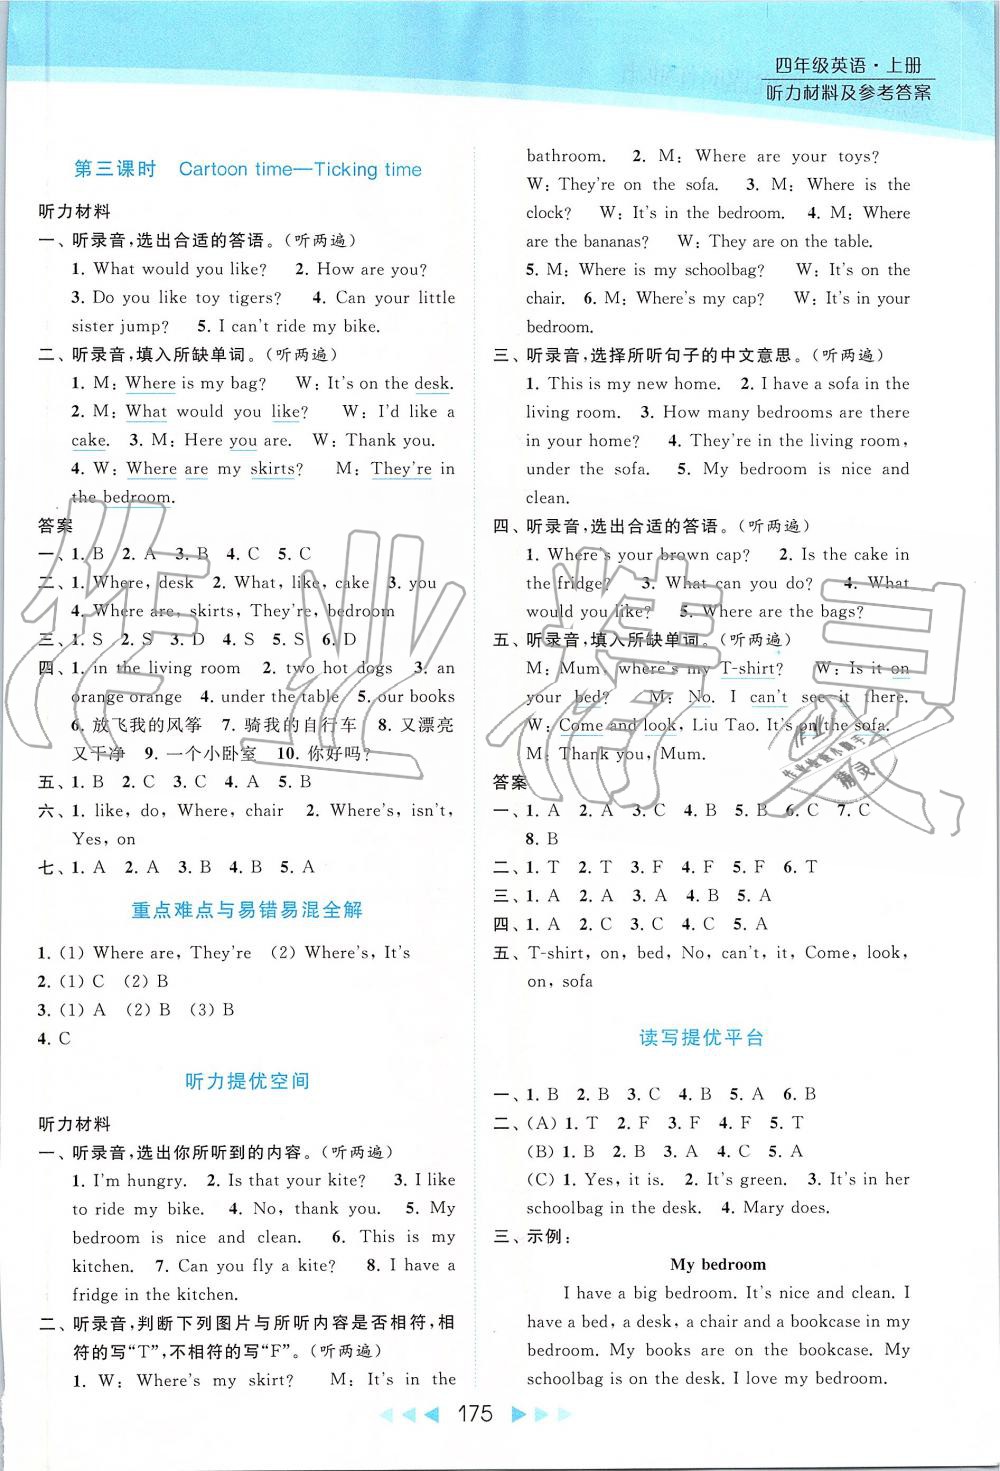 四年级英语·上册
听力材料及参考答案
第三课时 Cartoon time—Ticking time
听力材料
一、听录音,选出合适的答语。(听两遍)
1. What would you like? 2. How are you?
3. Do you like toy tigers? 4. Can your little
sister jump? 5. I can't ride my bike.
二、听录音,填入所缺单词。(听两遍)
1. M: Where is my bag? W: It's on the desk.
2. M: What would you like? W: I'd like a
cake. 3. M: Here you are. W: Thank you.
4. W: Where are my skirts? M: They're in
the bedroom.
答案
一、1. B 2. A 3. B 4. C 5. C
二、1. Where, desk 2. What, like, cake 3. you
4. Where are, skirts, They're, bedroom
三、1. S 2. S 3. D 4. S 5. S 6. D
四、1. in the living room 2. two hot dogs 3. an
orange orange 4. under the table 5. our books
6. 放飞我的风筝 7. 骑我的自行车 8. 又漂亮
又干净 9. 一个小卧室 10. 你好吗?
五、1. B 2. C 3. C 4. A 5. B
六、1. like, do, Where, chair 2. Where's, isn't,
Yes, on
七、1. A 2. A 3. B 4. B 5. A
重点难点与易错易混全解
1. (1) Where are, They're (2) Where's, It's
2. (1) C (2) B
3. (1) A (2) B (3) B
4. C
听力提优空间
听力材料
一、听录音,选出你所听到的内容。(听两遍)
1. I'm hungry. 2. Is that your kite? 3. I like
to ride my bike. 4. No, thank you. 5. My
bedroom is nice and clean. 6. This is my
kitchen. 7. Can you fly a kite? 8. I have a
fridge in the kitchen.
二、听录音,判断下列图片与所听内容是否相符,相
符的写"T",不相符的写"F"。(听两遍)
1. W: Where's my skirt? M: It's in the
bathroom. 2. M: Where are your toys?
W: They're on the sofa. 3. M: Where is the
clock? W: It's in the bedroom. 4. M: Where
are the bananas? W: They are on the table.
5. M: Where is my schoolbag? W: It's on the
chair. 6. M: Where's my cap? W: It's in your
bedroom.
三、听录音,选择所听句子的中文意思。(听两遍)
1. This is my new home. 2. I have a sofa in the
living room. 3. How many bedrooms are there
in your home? 4. They're in the living room,
under the sofa. 5. My bedroom is nice and
clean.
四、听录音,选出合适的答语。(听两遍)
1. Where's your brown cap? 2. Is the cake in
the fridge? 3. What can you do? 4. What
would you like? 5. Where are the bags?
五、听录音,填入所缺单词。(听两遍)
M: Mum, where's my T-shirt? W: Is it on
your bed? M: No. I can't see it there.
W: Come and look, Liu Tao. It's on the sofa.
M: Thank you, Mum.
答案
一、1. A 2. A 3. C 4. B 5. B 6. C 7. C
8. B
二、1. T 2. T 3. F 4. F 5. F 6. T
三、1. A 2. A 3. A 4. B 5. A
四、1. A 2. C 3. C 4. C 5. A
五、T-shirt, on, bed, No, can't, it, Come, look,
on, sofa
读写提优平台
一、1. B 2. B 3. C 4. B 5. A 6. B
二、(A) 1. T 2. F 3. F 4. T 5. F
(B) 1. B 2. B 3. A 4. C 5. A
(C) 1. Yes, it is. 2. It's green. 3. It's in her
schoolbag in the desk. 4. Mary does.
三、示例:
My bedroom
I have a big bedroom. It's nice and clean. I
have a bed, a desk, a chair and a bookcase in my
bedroom. My books are on the bookcase. My
schoolbag is on the desk. I love my bedroom.
175
作业精灵